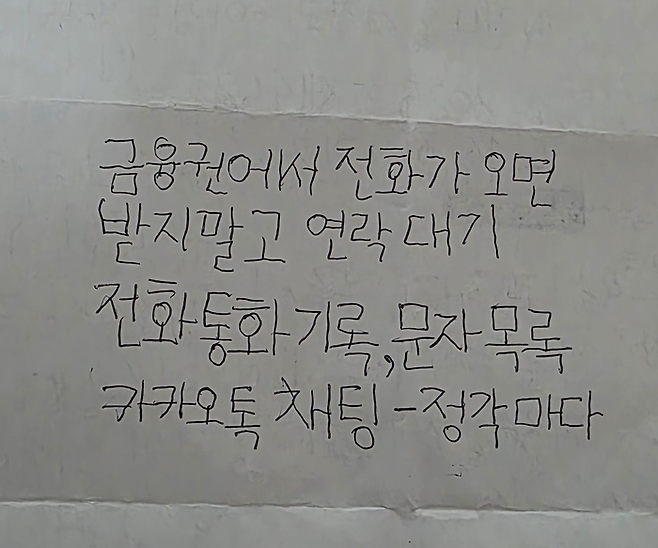 금융권에서 전화가 오면
받지말고 연락 대기
전화통화 기록,문자 목록
카카오톡 채팅 -정각마다